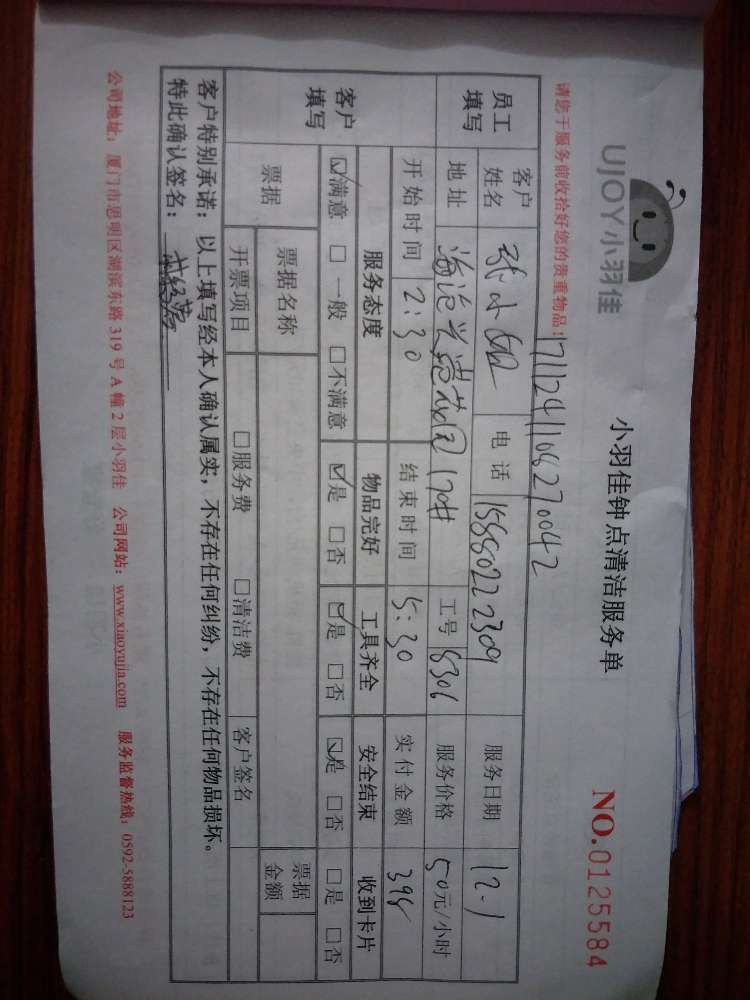 UJOY小羽佳
小羽佳钟点清洁服务单
NO.0125584
请您于服务前收拾好您的贵重物品!
1711241108270042
员工填写 客户姓名 张小姐 电话 15880222309 服务日期 12.1
地址 海沧 花园 17# 工号 8306 服务价格 50元/小时
开始时间 2:30 结束时间 5:30 实付金额
客户填写 服务态度 物品完好 工具齐全 安全结束 收到卡片
☑满意 □一般 □不满意 ☑是 □否 ☑是 □否 ☑是 □否 □是 □否
票据 票据名称 票据金额
开票项目 □服务费 □清洁费 客户签名
客户特别承诺:以上填写经本人确认属实,不存在任何纠纷,不存在任何物品损坏。
特此确认签名:
公司地址:厦门市思明区湖滨东路 319 号 A 幢 2 层小羽佳 公司网站:www.xiaoyujia.com 服务监督热线:0592-5888123